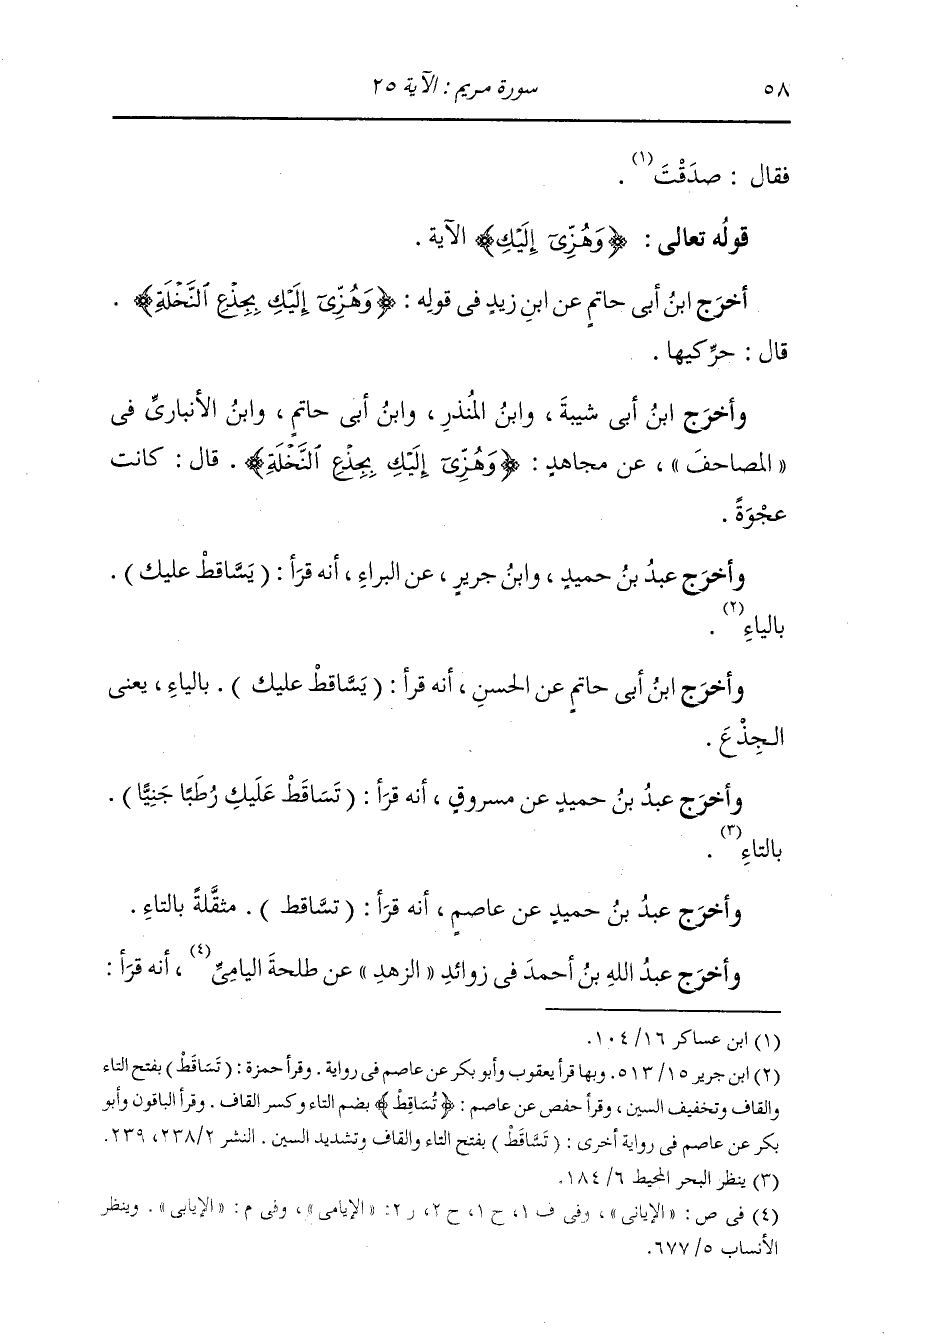 ٥٨
سورة مريم : الآية ٢٥
فقال : صدَقْتَ(١) .
قولُه تعالى : ﴿وَهُزِّىٓ إِلَيْكِ﴾ الآية .
أخرَج ابنُ أبى حاتمٍ عن ابنِ زيدٍ فى قولِه : ﴿وَهُزِّىٓ إِلَيْكِ بِجِذْعِ ٱلنَّخْلَةِ﴾ .
قال : حرِّكيها .
وأخرَج ابنُ أبى شيبةَ ، وابنُ المُنذرِ ، وابنُ أبى حاتمٍ ، وابنُ الأنبارىِّ فى
« المصاحفَ » ، عن مجاهدٍ : ﴿وَهُزِّىٓ إِلَيْكِ بِجِذْعِ ٱلنَّخْلَةِ﴾ . قال : كانت
عجْوَةً .
وأخرَج عبدُ بنُ حميدٍ ، وابنُ جريرٍ ، عن البراءِ ، أنه قرَأ : ( يَسَّاقطْ عليك ) .
بالياءِ(٢) .
وأخرَج ابنُ أبى حاتمٍ عن الحسنِ ، أنه قرأ : ( يَسَّاقطْ عليك ) . بالياءِ ، يعنى
الجِذْعَ .
وأخرَج عبدُ بنُ حميدٍ عن مسروقٍ ، أنه قرَأ : ( تَسَاقَطْ عَلَيكِ رُطَبًا جَنِيًّا ) .
بالتاءِ(٣) .
وأخرَج عبدُ بنُ حميدٍ عن عاصمٍ ، أنه قرَأ : ( تسَّاقط ) . مثقَّلةً بالتاءِ .
وأخرَج عبدُ اللهِ بنُ أحمدَ فى زوائدِ « الزهدِ » عن طلحةَ اليامِىِّ(٤) ، أنه قرَأ :
(١) ابن عساكر ١٠٤/١٦.
(٢) ابن جرير ٥١٣/١٥. وبها قرأ يعقوب وأبو بكر عن عاصم فى رواية . وقرأ حمزة : ( تَسَاقَطْ ) بفتح التاء
والقاف وتخفيف السين ، وقرأ حفص عن عاصم : ﴿ تُسَاقِطْ ﴾ بضم التاء وكسر القاف . وقرأ الباقون وأبو
بكر عن عاصم فى رواية أخرى : ( تَسَّاقَطْ ) بفتح التاء والقاف وتشديد السين . النشر ٢٣٨/٢، ٢٣٩.
(٣) ينظر البحر المحيط ١٨٤/٦.
(٤) فى ص : « الإيانى » ، وفى ف ١، ح ١، ح ٢، ر ٢: « الإيامى » ، وفى م : « الإيابى » . وينظر
الأنساب ٦٧٧/٥.